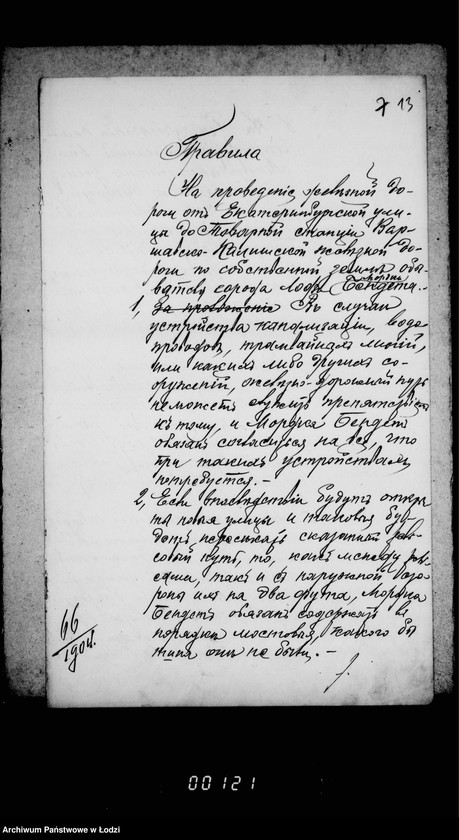 7 13
Правила
На проведеніе желѣзной до-
роги отъ Екатеринбургской ули-
цы до Товарной станціи Вар-
шавско-Калишской желѣзной до-
роги по собственной землѣ обы-
вателя города Лодзи Мордки Бендета.-
1, За проведеніе Въ случаѣ
устройства канализаціи, водо-
проводовъ, трамвайныхъ линій,
или какихъ либо другихъ со-
оруженій, желѣзно-дорожный путь
не можетъ служить препятствіемъ
къ тому, и Мордка Бендетъ
обязанъ согласиться на все, что
при такихъ устройствахъ
потребуется.-
2, Если впослѣдствіи будутъ откры-
ты новыя улицы и таковыя бу-
детъ пересѣкать сказанный рель-
совый путь, то, какъ между рель-
сами, такъ и съ наружной сто-
роны ихъ на два фута, Мордка
Бендетъ обязанъ содержать въ
порядкѣ мостовыя, какого бы
типа они не были.-
66
1904.
00121
Archiwum Państwowe w Łodzi